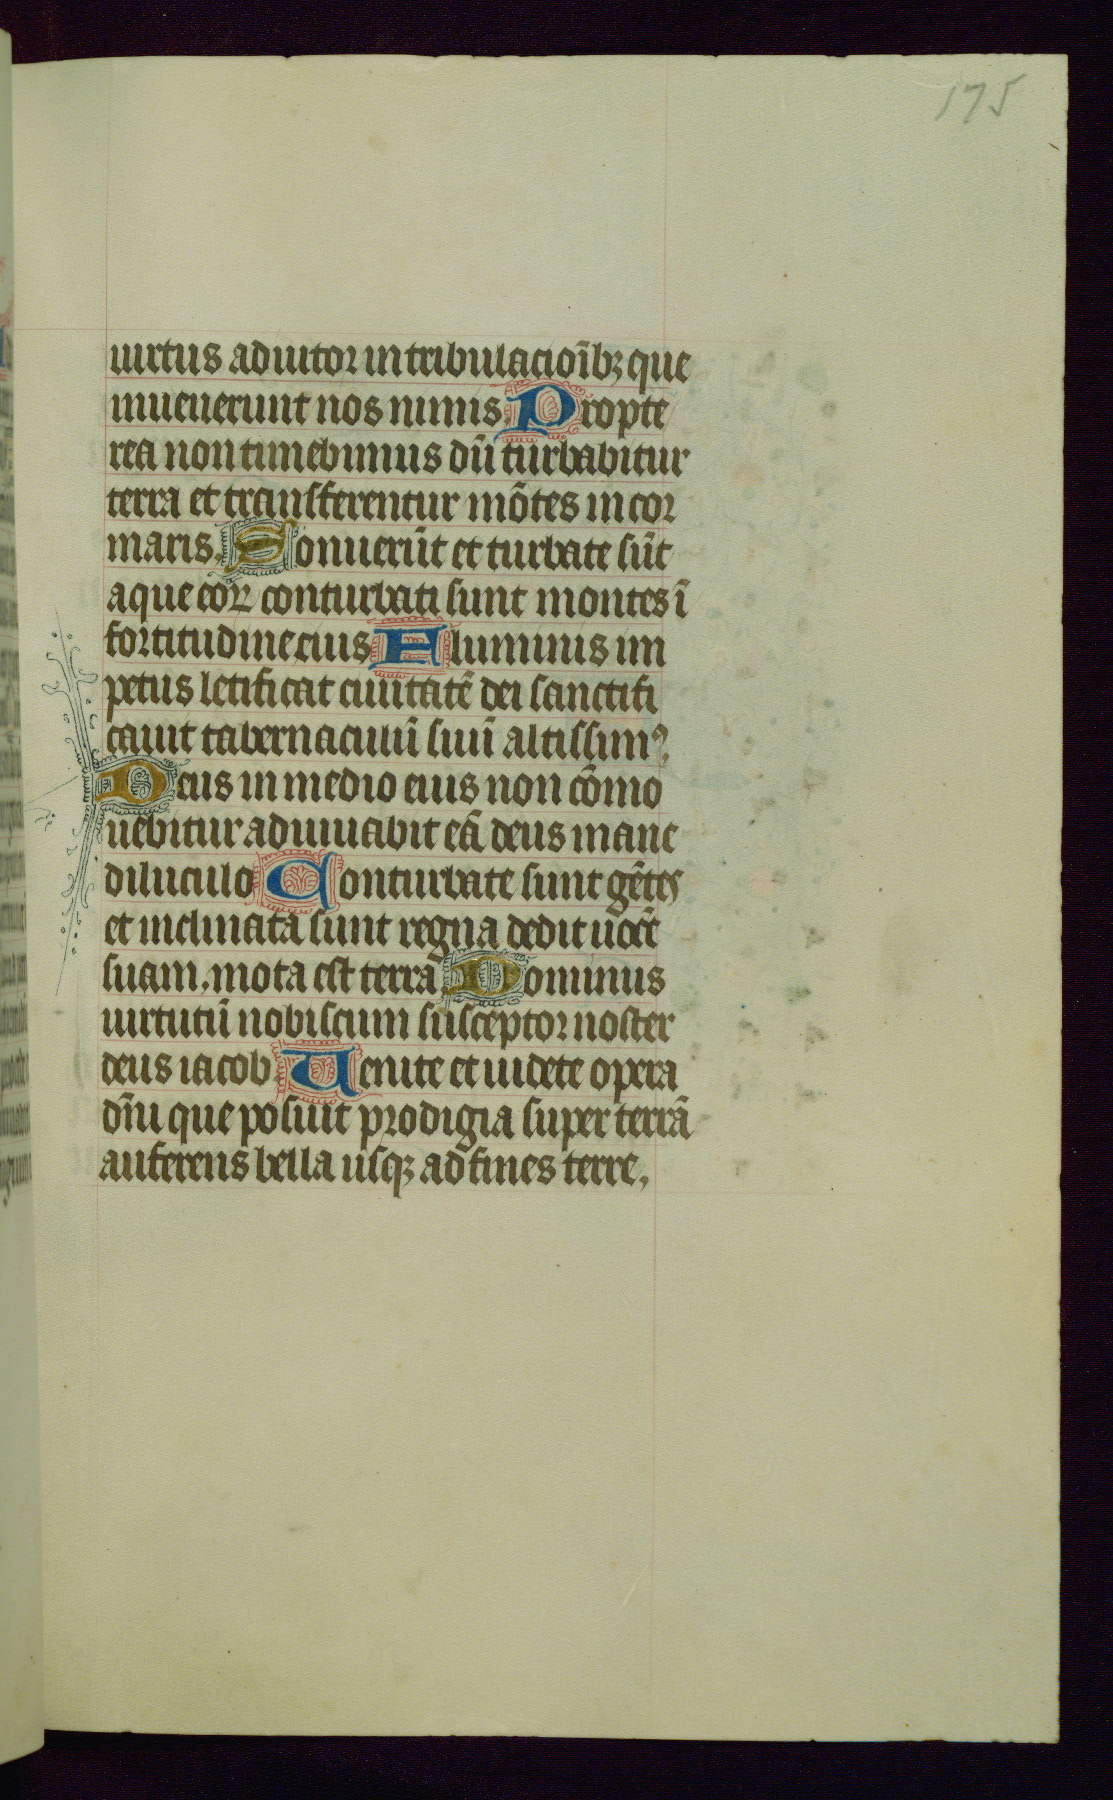 175
uirtus adiutor in tribulacioībꝫ que
inuenerunt nos nimis. Propte
rea non timebimus dū turbabitur
terra et transferentur mōtes in cor
maris. Sonuerūt et turbate sūt
aque eoꝝ conturbati sunt montes ī
fortitudine eius Fluminis im
petus letificat ciuitatē dei sanctifi
cauit tabernaculū suū altissimꝰ.
Deus in medio eius non cōmo
uebitur adiuuabit eā deus mane
diluculo Conturbate sunt gētes
et inclinata sunt regna dedit uocē
suam, mota est terra. Dominus
uirtutū nobiscum susceptor noster
deus iacob. Uenite et uidete opera
dn̄i que posuit prodigia super terrā
auferens bella usqꝫ ad fines terre,